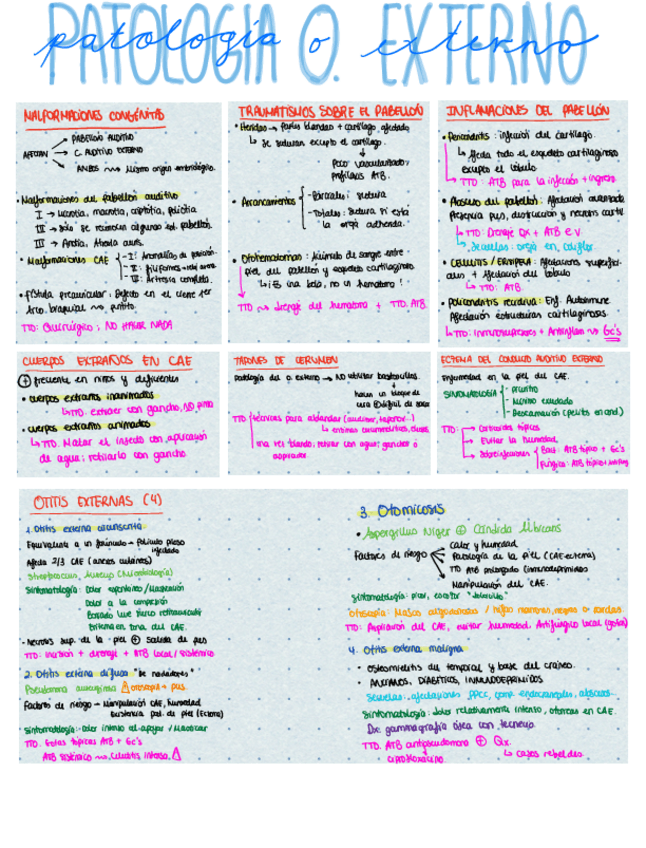 PATOLOGÍA O. EXTERNO
patología o. externo
MALFORMACIONES CONGÉNITAS
AFECTAN → PABELLÓN AUDITIVO
→ C. AUDITIVO EXTERNO
→ AMBOS ~> Mismo origen embriológico.
• Malformaciones del pabellón auditivo
I → Microtia, macrotia,
II → Sólo se reconocen algunas est. pabellón.
III → Anotia. Ausencia
• Malformaciones CAE
- I: Anomalías de
- II:
- III: Atresia completa.
• Fístula preauricular: Defecto en el cierre 1er
Arco branquial ~>
TTO: Quirúrgico; NO HACER NADA
TRAUMATISMOS SOBRE EL PABELLÓN
• Heridas → Partes blandas + cartílago afectado
↳ Se suturan excepto el cartílago.
Poco vascularizado,
Profilaxis ATB.
• Arrancamientos
- Parciales: Sutura
- Totales: Sutura si está
la oreja
• Otohematoma: Acúmulo de sangre entre
piel del pabellón y esqueleto cartilaginoso
TTO ~> drenaje del hematoma + TTO. ATB.
INFLAMACIONES DEL PABELLÓN
• Pericondritis: infección del cartílago.
↳ Afecta todo el esqueleto cartilaginoso
excepto el lóbulo
↳ TTO: ATB para la infección + ingreso
• Absceso del pabellón: Afectación avanzada
Presencia pus, destrucción y necrosis cartíl
↳ TTO: Drenaje Qx + ATB e.v
↳ Secuelas: oreja en coliflor
• CELULITIS / ERISIPELA: Afectaciones superfici-
ales + Afectación del lóbulo
↳ TTO: ATB.
• Policondritis recidiva: Enf. Autoinmune
Afectación estructuras cartilaginosas.
↳ TTO: Inmunosupresores + Antiinflam ~> Gc's
CUERPOS EXTRAÑOS EN CAE
⊕ frecuente en niños y deficientes
• cuerpos extraños inanimados
↳ TTO: extraer con gancho, NO pinza
• cuerpos extraños animados
↳ TTO. Matar el insecto con aplicación
de agua; retirarlo con gancho
TAPONES DE CERUMEN
Patología del o. externo ~> NO utilizar bastoncillos.
hacen un bloque de
cera
TTO técnicas para ablandar
Una vez blando, retirar con agua, ganchos o
aspirador.
ECZEMA DEL CONDUCTO AUDITIVO EXTERNO
Enfermedad en la piel del CAE.
SINTOMATOLOGÍA
- prurito
- Mínimo exudado
- Descamación (pielitis en cond)
TTO:
→ Corticoides tópicos
→ Evitar la humedad.
→ Sobreinfecciones
Bact: ATB tópico + Gc's
Fúngica: ATB tópico + antifung
OTITIS EXTERNAS (4)
1. Otitis externa circunscrita.
Equivalente a un forúnculo → Folículo piloso
infectado
Afecta 2/3 CAE (anexos cutáneos)
Streptococcus, Aureus (Microbiología)
Sintomatología: Dolor espontáneo / Masticación
Dolor a la compresión
Borrado
Eritema en zona del CAE.
- Necrosis sup. de la piel ⊕ Salida de pus
TTO: incisión + drenaje + ATB local / sistémico
2. Otitis externa difusa "De nadadores"
Pseudomona aeruginosa ⚠ otorragia + pus.
Factores de riesgo → Manipulación CAE, humedad
Existencia pat. de piel (Eczema)
Sintomatología → Dolor intenso al apoyar / Masticar
TTO. Gotas tópicas ATB + Gc's
ATB sistémico ~> Celulitis intensa ⚠
3. Otomicosis
• Aspergillus Niger ⊕ Cándida Albicans
Factores de riesgo
→ Calor y humedad
→ Patología de la piel (CAE-eczema)
→ TTO ATB prolongado (inmunodeprimidos
→ Manipulación del CAE.
Sintomatología: picor, escozor
Otoscopia: Masas algodonosas / hifas marrones, negras o verdes
TTO: Aspiración del CAE, evitar humedad, Antifúngico local (gotas)
4. Otitis externa maligna
• Osteomielitis del temporal y base del cráneo.
• ANCIANOS, DIABÉTICOS, INMUNODEPRIMIDOS
Secuelas: afectaciones PPCC, comp. endocraneales, abscesos
Sintomatología: Dolor relativamente intenso, otorrea en CAE.
Dx: gammagrafía ósea con tecnecio.
TTO. ATB antipseudomona ⊕ Qx.
ciprofloxacino. ↳ casos rebeldes